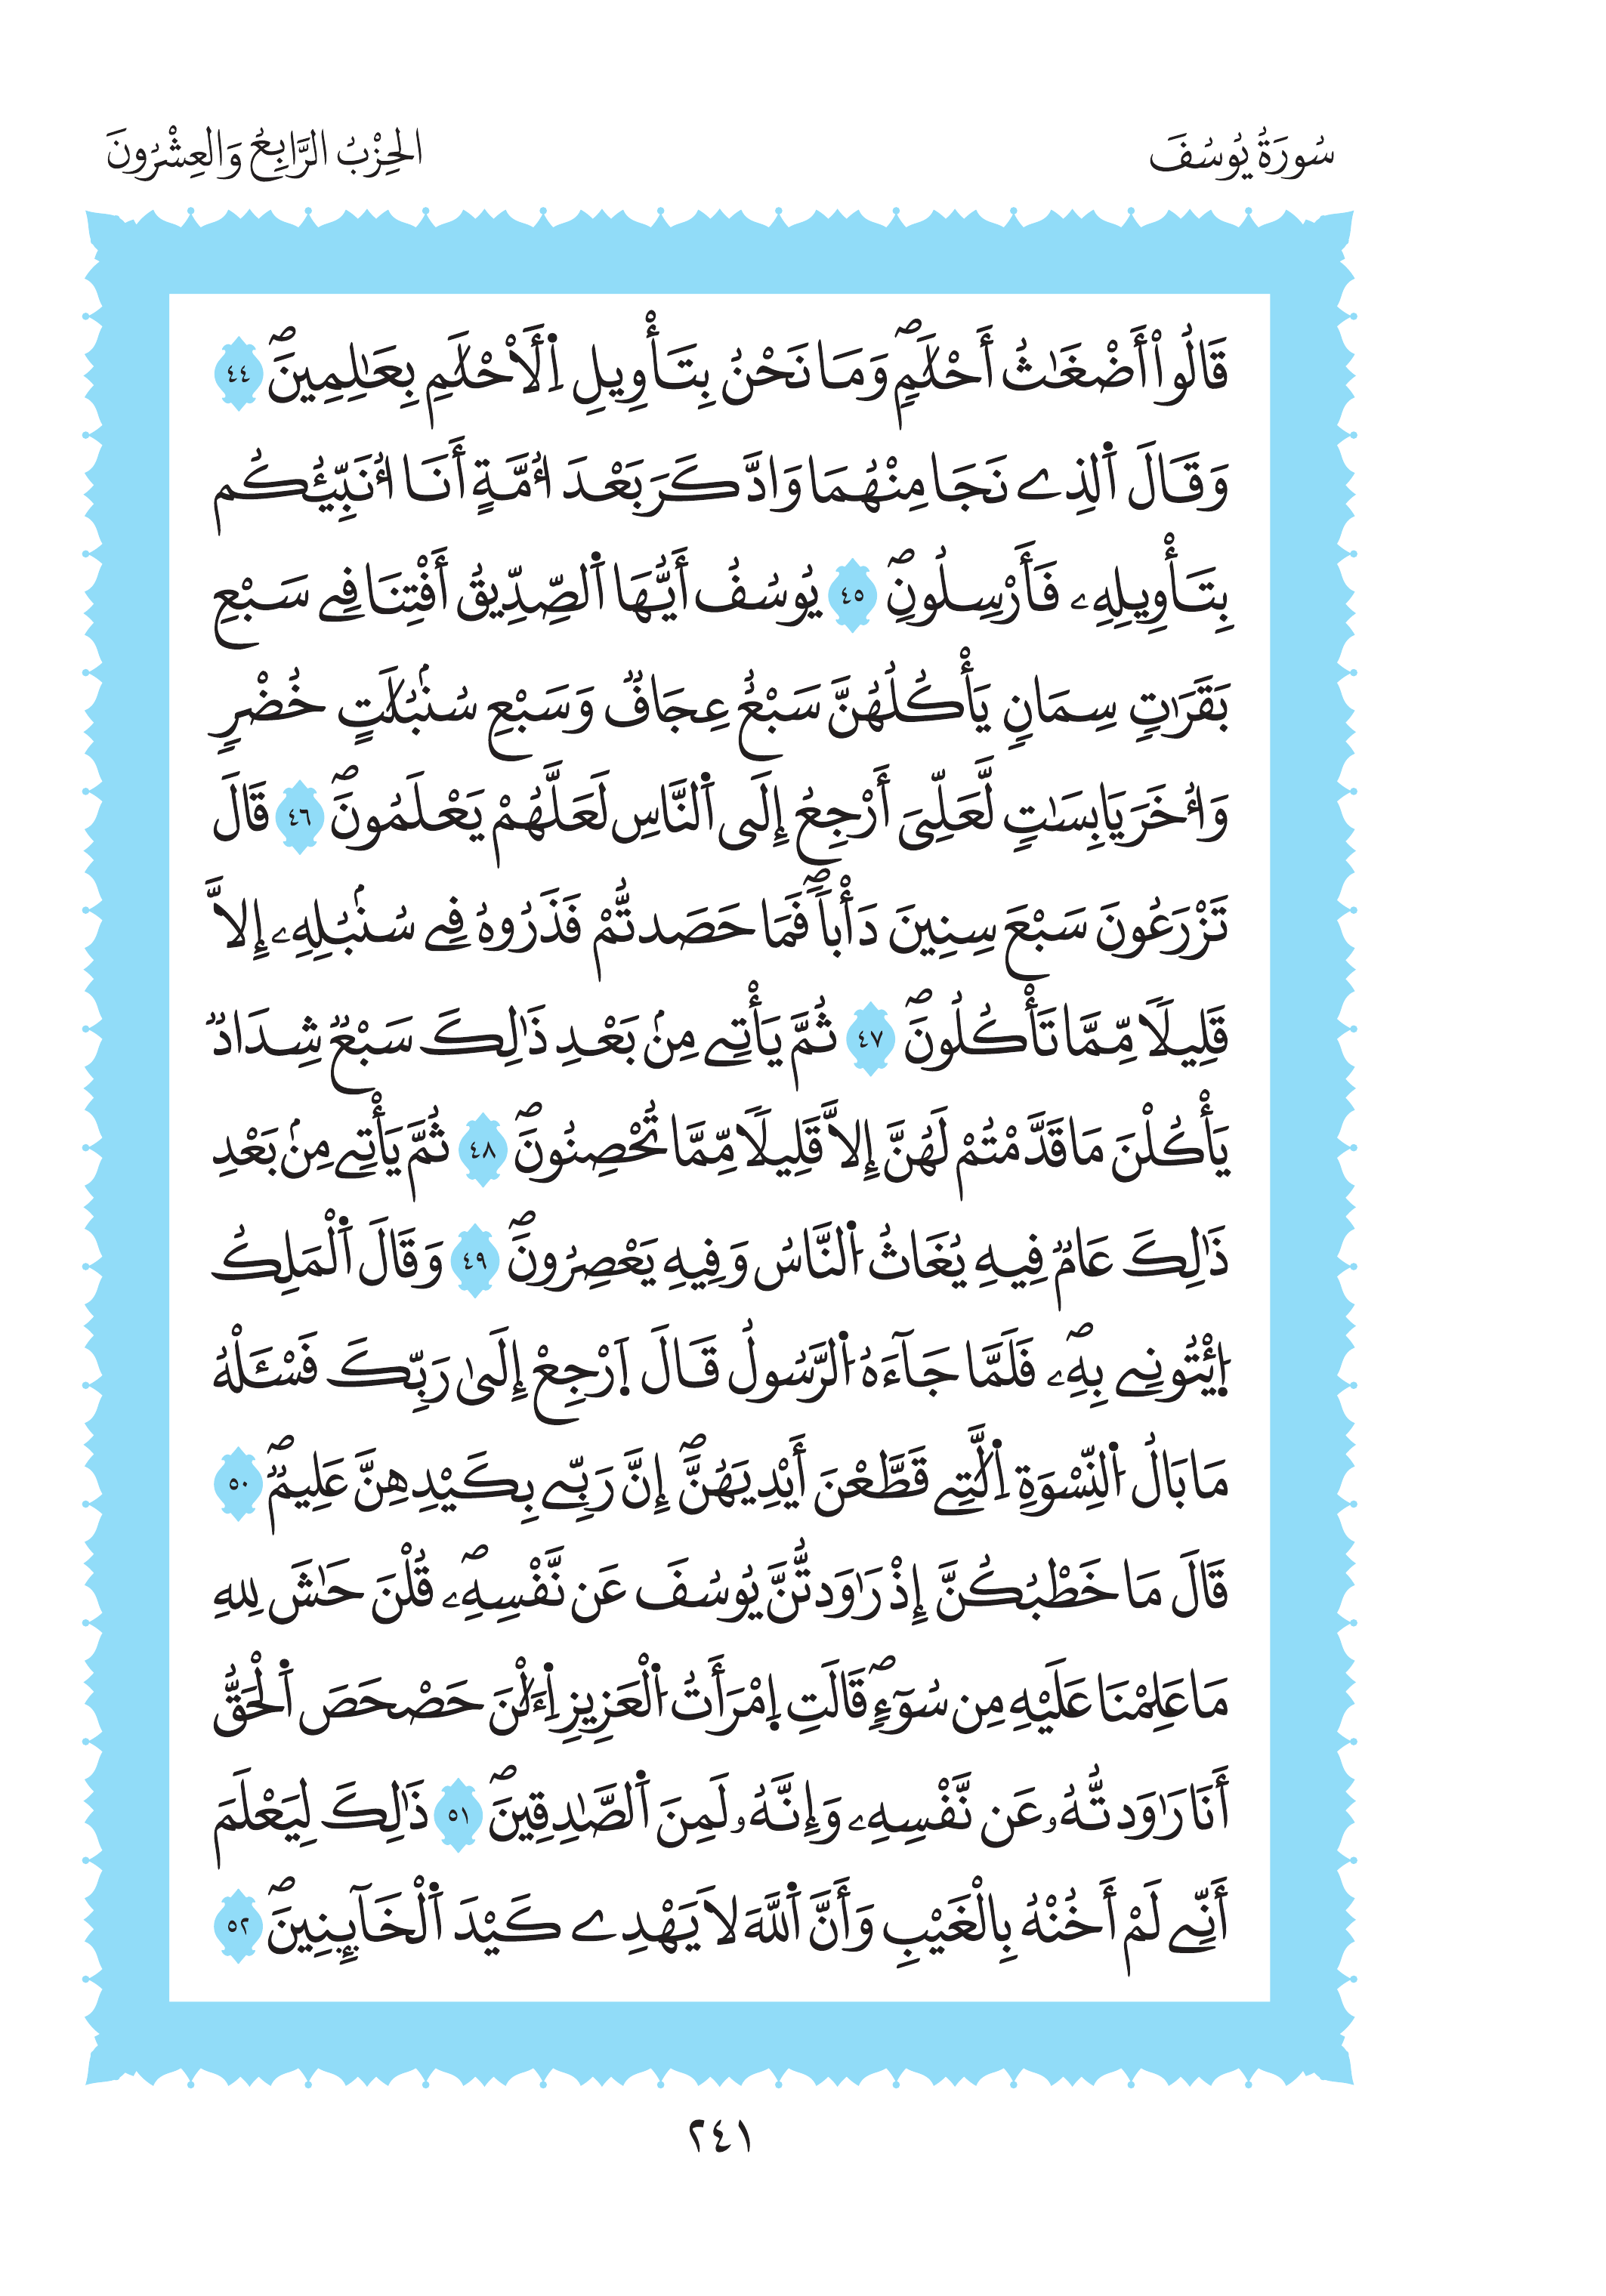 سُورَةُ يُوسُفَ
الحِزْبُ الرَّابِعُ وَالعِشْرُونَ
قَالُواْ أَضْغَٰثُ أَحْلَٰمٖۖ وَمَا نَحْنُ بِتَأْوِيلِ اِ۬لَاحْلَٰمِ بِعَٰلِمِينَۖ ٤٤
وَقَالَ اَ۬لذِے نَجَا مِنْهُمَا وَادَّكَرَ بَعْدَ أُمَّةٍ أَنَا أُنَبِّئُكُم
بِتَأْوِيلِهِۦ فَأَرْسِلُونِۖ ٤٥ يُوسُفُ أَيُّهَا اَ۬لصِّدِّيقُ أَفْتِنَا فِے سَبْعِ
بَقَرَٰتٖ سِمَانٖ يَأْكُلُهُنَّ سَبْعٌ عِجَافٞ وَسَبْعِ سُنۢبُلَٰتٍ خُضْرٖ
وَأُخَرَ يَابِسَٰتٖ لَّعَلِّىَ أَرْجِعُ إِلَى اَ۬لنَّاسِ لَعَلَّهُمْ يَعْلَمُونَۖ ٤٦ قَالَ
تَزْرَعُونَ سَبْعَ سِنِينَ دَأْباٗۖ فَمَا حَصَدتُّمْ فَذَرُوهُ فِے سُنۢبُلِهِۦ إِلَّا
قَلِيلاٗ مِّمَّا تَأْكُلُونَۖ ٤٧ ثُمَّ يَأْتِے مِنۢ بَعْدِ ذَٰلِكَ سَبْعٞ شِدَادٞ
يَأْكُلْنَ مَا قَدَّمْتُمْ لَهُنَّ إِلَّا قَلِيلاٗ مِّمَّا تُحْصِنُونَۖ ٤٨ ثُمَّ يَأْتِے مِنۢ بَعْدِ
ذَٰلِكَ عَامٞ فِيهِ يُغَاثُ اُ۬لنَّاسُ وَفِيهِ يَعْصِرُونَۖ ٤٩ وَقَالَ اَ۬لْمَلِكُ
اُ۪يْتُونِے بِهِۦۖ فَلَمَّا جَآءَهُ اُ۬لرَّسُولُ قَالَ اَ۪رْجِعْ إِلَىٰ رَبِّكَ فَسْـَٔلْهُ
مَا بَالُ اُ۬لنِّسْوَةِ اِ۬لَّٰتِے قَطَّعْنَ أَيْدِيَهُنَّۖ إِنَّ رَبِّے بِكَيْدِهِنَّ عَلِيمٞۖ ٥٠
قَالَ مَا خَطْبُكُنَّ إِذْ رَٰوَدتُّنَّ يُوسُفَ عَن نَّفْسِهِۦۖ قُلْنَ حَٰشَ لِلهِ
مَا عَلِمْنَا عَلَيْهِ مِن سُوٓءٖۖ قَالَتِ اِ۪مْرَأَتُ اُ۬لْعَزِيزِ اِ۬ءَلَٰنَ حَصْحَصَ اَ۬لْحَقُّ
أَنَا رَٰوَدتُّهُۥ عَن نَّفْسِهِۦ وَإِنَّهُۥ لَمِنَ اَ۬لصَّٰدِقِينَۖ ٥١ ذَٰلِكَ لِيَعْلَمَ
أَنِّے لَمْ أَخُنْهُ بِالْغَيْبِ وَأَنَّ اَ۬للَّهَ لَا يَهْدِے كَيْدَ اَ۬لْخَآئِنِينَۖ ٥٢
٢٤١